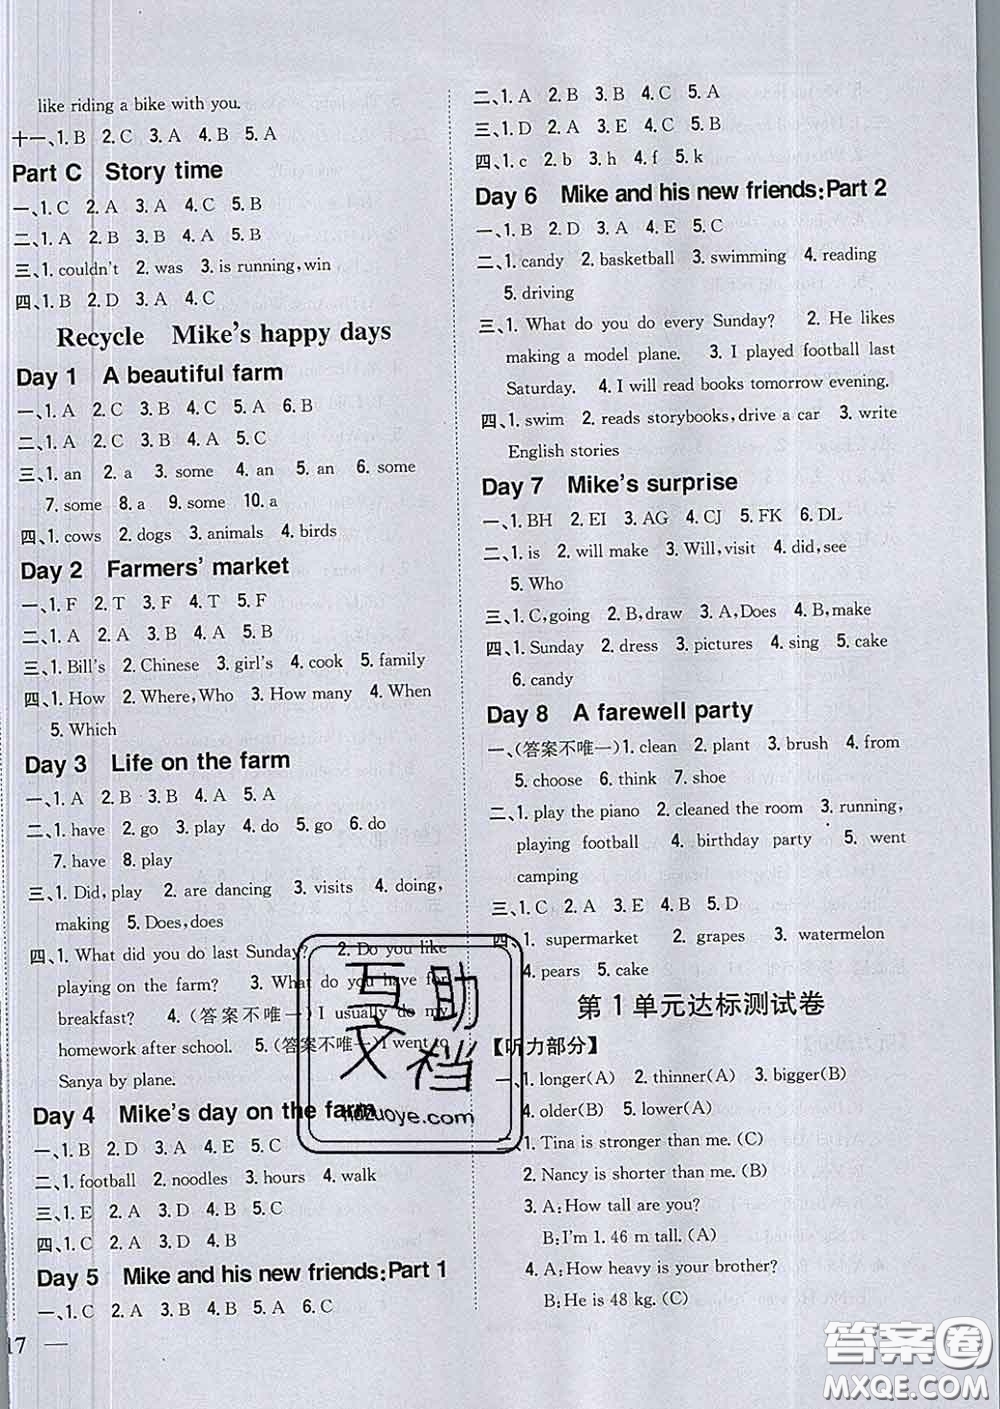 like riding a bike with you.
十一、1. B 2. C 3. A 4. B 5. A
Part C Story time
一、1. C 2. A 3. A 4. C 5. B
二、1. A 2. B 3. B 4. A 5. B
三、1. couldn't 2. was 3. is running, win
四、1. B 2. D 3. A 4. C
Recycle Mike's happy days
Day 1 A beautiful farm
一、1. A 2. C 3. B 4. C 5. A 6. B
二、1. A 2. C 3. B 4. A 5. C
三、1. an 2. a 3. some 4. an 5. an 6. some
7. some 8. a 9. some 10. a
四、1. cows 2. dogs 3. animals 4. birds
Day 2 Farmers' market
一、1. F 2. T 3. F 4. T 5. F
二、1. A 2. A 3. B 4. A 5. B
三、1. Bill's 2. Chinese 3. girl's 4. cook 5. family
四、1. How 2. Where, Who 3. How many 4. When
5. Which
Day 3 Life on the farm
一、1. A 2. B 3. B 4. A 5. A
二、1. have 2. go 3. play 4. do 5. go 6. do
7. have 8. play
三、1. Did, play 2. are dancing 3. visits 4. doing,
making 5. Does, does
四、1. What did you do last Sunday? 2. Do you like
playing on the farm? 3. What do you have for
breakfast? 4. (答案不唯一) I usually do my
homework after school. 5. (答案不唯一) I went to
Sanya by plane.
Day 4 Mike's day on the farm
一、1. B 2. D 3. A 4. E 5. C
二、1. football 2. noodles 3. hours 4. walk
三、1. E 2. A 3. D 4. B 5. C
四、1. C 2. A 3. D 4. B
Day 5 Mike and his new friends: Part 1
一、1. C 2. A 3. B 4. B 5. A 6. C
17
二、1. A 2. B 3. B 4. C 5. A
三、1. D 2. A 3. E 4. C 5. B
四、1. c 2. b 3. h 4. f 5. k
Day 6 Mike and his new friends: Part 2
一、1. B 2. D 3. A 4. E 5. C
二、1. candy 2. basketball 3. swimming 4. reading
5. driving
三、1. What do you do every Sunday? 2. He likes
making a model plane. 3. I played football last
Saturday. 4. I will read books tomorrow evening.
四、1. swim 2. reads storybooks, drive a car 3. write
English stories
Day 7 Mike's surprise
一、1. BH 2. EI 3. AG 4. CJ 5. FK 6. DL
二、1. is 2. will make 3. Will, visit 4. did, see
5. Who
三、1. C, going 2. B, draw 3. A, Does 4. B, make
四、1. Sunday 2. dress 3. pictures 4. sing 5. cake
6. candy
Day 8 A farewell party
一、(答案不唯一) 1. clean 2. plant 3. brush 4. from
5. choose 6. think 7. shoe
二、1. play the piano 2. cleaned the room 3. running,
playing football 4. birthday party 5. went
camping
三、1. C 2. A 3. E 4. B 5. D
四、1. supermarket 2. grapes 3. watermelon
4. pears 5. cake
第1单元达标测试卷
【听力部分】
一、1. longer(A) 2. thinner(A) 3. bigger(B)
4. older(B) 5. lower(A)
二、1. Tina is stronger than me. (C)
2. Nancy is shorter than me. (B)
3. A: How tall are you?
B: I'm 1. 46 m tall. (A)
4. A: How heavy is your brother?
B: He is 48 kg. (C)
互助
文档
hdzuoye.com
答案圈
MXQE.COM